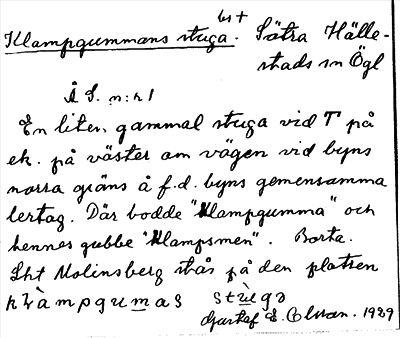 bst
Klampgummans stuga. Sätra Hälle-
stads sn Ögl
Å S. n:r 1
En liten gammal stuga vid T på
ek. på väster om vägen vid byns
norra gräns å f.d. byns gemensamma
lertag. Där bodde "Klampgumma" och
hennes gubbe "Klampsmen". Borta.
Lht Molinsberg står på den platsen
Gustaf E. Olsson. 1929